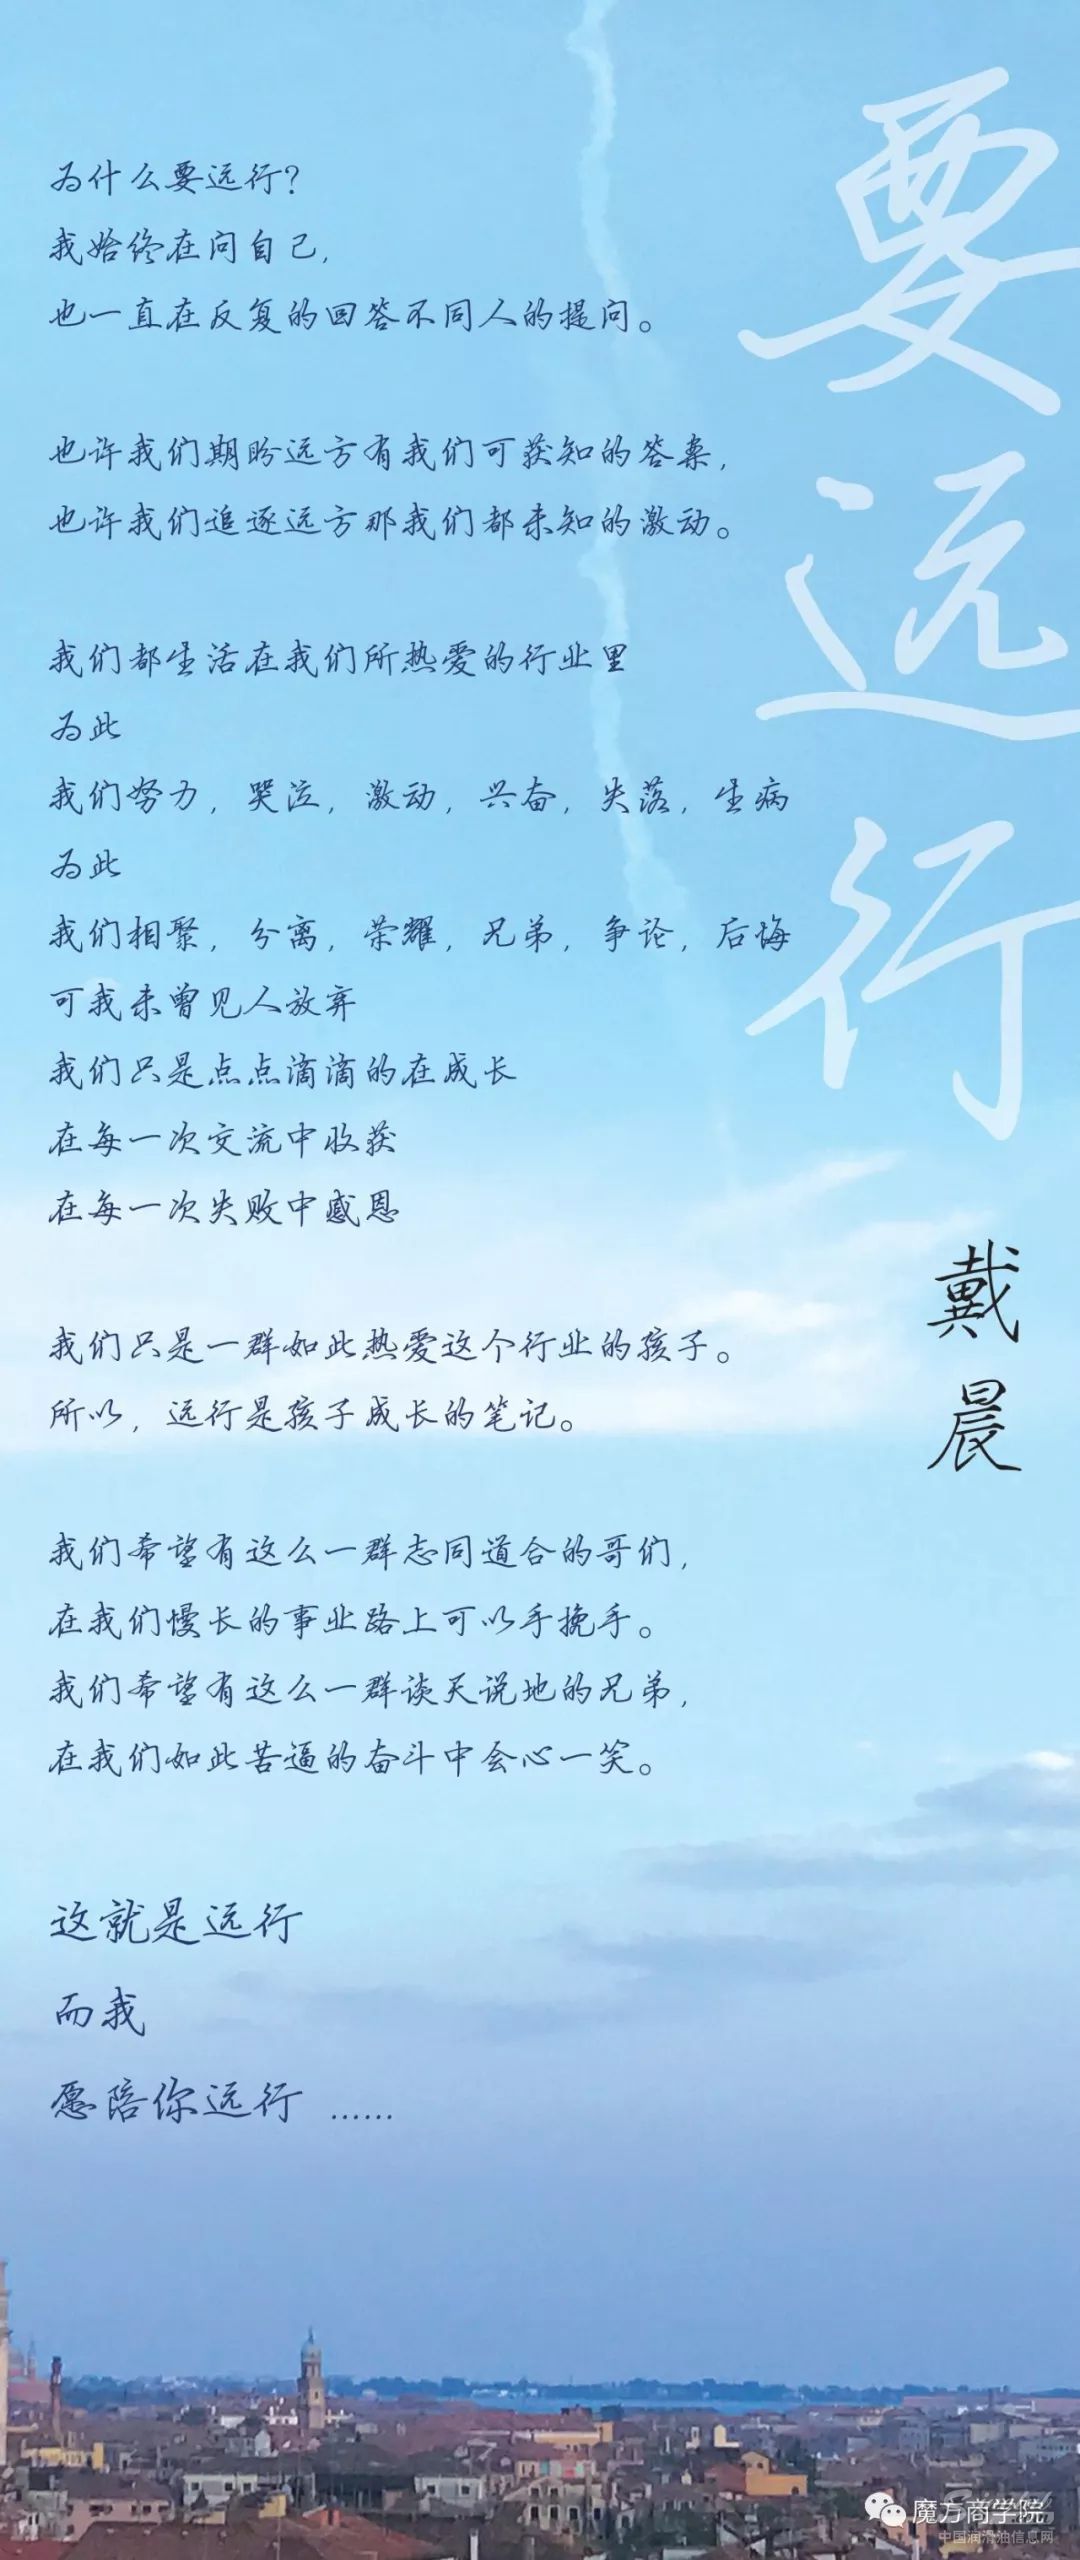 要远行
戴晨
为什么要远行？
我始终在问自己，
也一直在反复的回答不同人的提问。
也许我们期盼远方有我们可获知的答案，
也许我们追逐远方那我们都未知的激动。
我们都生活在我们所热爱的行业里
为此
我们努力，哭泣，激动，兴奋，失落，生病
为此
我们相聚，分离，荣耀，兄弟，争论，后悔
可我未曾见人放弃
我们只是点点滴滴的在成长
在每一次交流中收获
在每一次失败中感恩
我们只是一群如此热爱这个行业的孩子。
所以，远行是孩子成长的笔记。
我们希望有这么一群志同道合的哥们，
在我们慢长的事业路上可以手挽手。
我们希望有这么一群谈天说地的兄弟，
在我们如此苦逼的奋斗中会心一笑。
这就是远行
而我
愿陪你远行 ……
魔方商学院
中国润滑油信息网